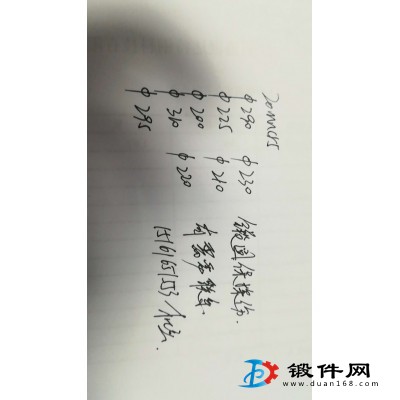 20MnCr5
φ290 φ230 锻圆保探伤.
φ225 φ210 有需要联系.
φ200 φ220 15161651553
φ310
φ295
锻件网
www.duan168.com